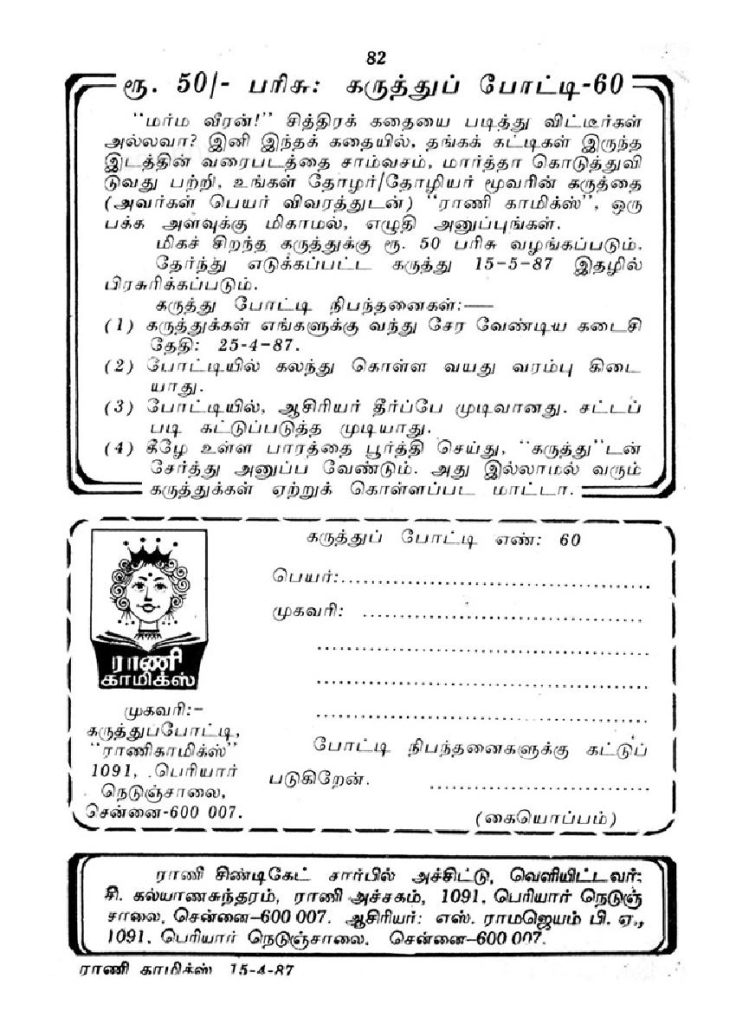 82
ரூ. 50/- பரிசு: கருத்துப் போட்டி-60
"மர்ம வீரன்!" சித்திரக் கதையை படித்து விட்டீர்கள்
அல்லவா? இனி இந்தக் கதையில், தங்கக் கட்டிகள் இருந்த
இடத்தின் வரைபடத்தை சாம்வசம், மார்த்தா கொடுத்துவி
டுவது பற்றி, உங்கள் தோழர்/தோழியர் மூவரின் கருத்தை
(அவர்கள் பெயர் விவரத்துடன்) "ராணி காமிக்ஸ்", ஒரு
பக்க அளவுக்கு மிகாமல், எழுதி அனுப்புங்கள்.
மிகச் சிறந்த கருத்துக்கு ரூ. 50 பரிசு வழங்கப்படும்.
தேர்ந்து எடுக்கப்பட்ட கருத்து 15-5-87 இதழில்
பிரசுரிக்கப்படும்.
கருத்து போட்டி நிபந்தனைகள்:—
(1) கருத்துக்கள் எங்களுக்கு வந்து சேர வேண்டிய கடைசி
தேதி: 25-4-87.
(2) போட்டியில் கலந்து கொள்ள வயது வரம்பு கிடை
யாது.
(3) போட்டியில், ஆசிரியர் தீர்ப்பே முடிவானது. சட்டப்
படி கட்டுப்படுத்த முடியாது.
(4) கீழே உள்ள பாரத்தை பூர்த்தி செய்து, "கருத்து"டன்
சேர்த்து அனுப்ப வேண்டும். அது இல்லாமல் வரும்
கருத்துக்கள் ஏற்றுக் கொள்ளப்பட மாட்டா.
கருத்துப் போட்டி எண்: 60
பெயர்:
முகவரி:
போட்டி நிபந்தனைகளுக்கு கட்டுப்
படுகிறேன்.
(கையொப்பம்)
ராணி
காமிக்ஸ்
முகவரி:-
கருத்துப்போட்டி,
"ராணிகாமிக்ஸ்"
1091, பெரியார்
நெடுஞ்சாலை,
சென்னை-600 007.
ராணி சிண்டிகேட் சார்பில் அச்சிட்டு, வெளியிட்டவர்:
சி. கல்யாணசுந்தரம், ராணி அச்சகம், 1091, பெரியார் நெடுஞ்
சாலை, சென்னை—600 007. ஆசிரியர்: எஸ். ராமஜெயம் பி. ஏ.,
1091, பெரியார் நெடுஞ்சாலை, சென்னை—600 007.
ராணி காமிக்ஸ் 15-4-87